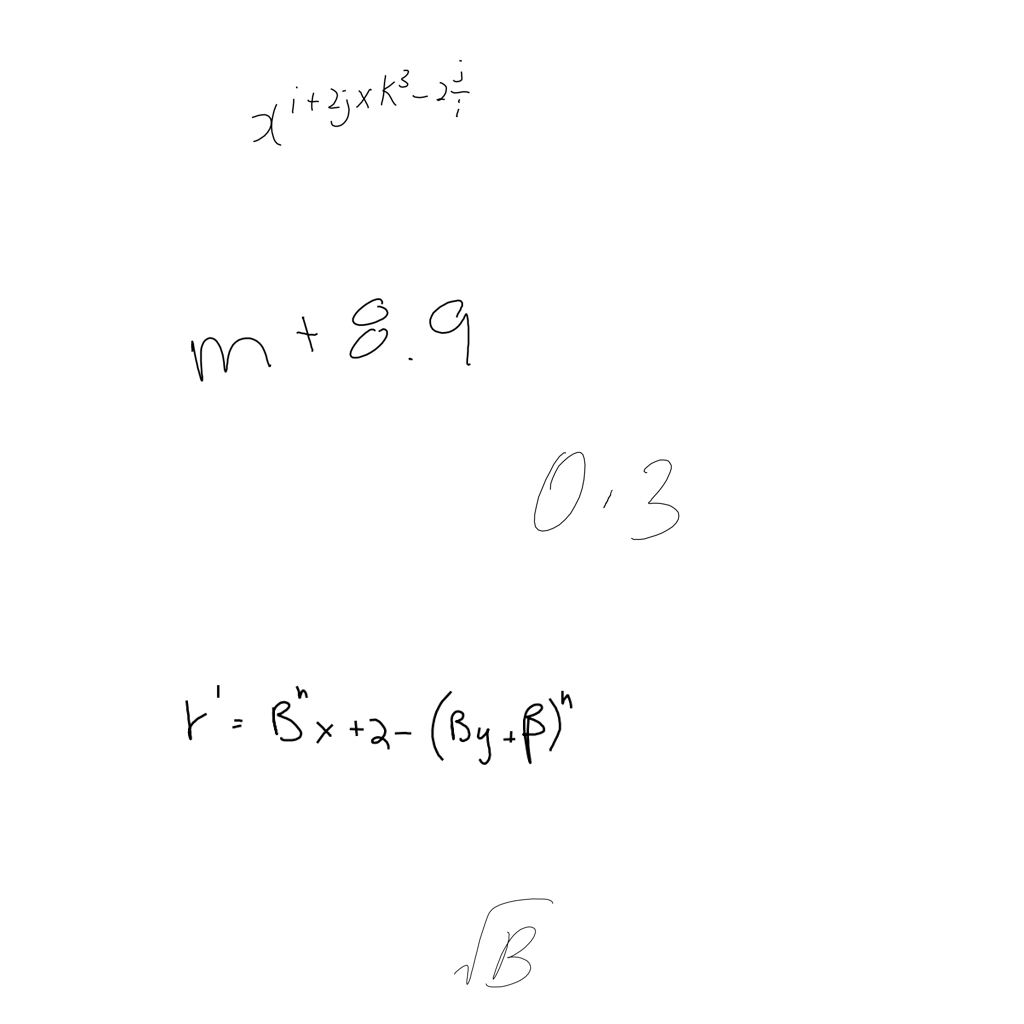 x^{i+2j×k^3-2\frac{j}{i}}
m + 8.9
0.3
r' = B^n x + 2 - (By + β)^n
\sqrt{B}